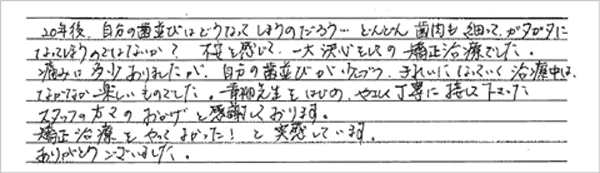 20年後、自分の歯並びはどうなってしまうのだろう… どんどん歯肉も細って、ガタガタに
なってしまうのではないか？ 不安を感じて、一大決心をしての矯正治療でした。
痛みは多少ありましたが、自分の歯並びが少しづつ、きれいになっていく治療中は、
なかなか楽しいものでした。先生をはじめ、やさしく丁寧に接して下さった
スタッフの方々のおかげと感謝しております。
矯正治療をやってよかった！と実感しています。
ありがとうございました。